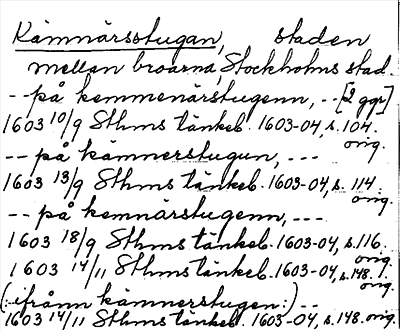 Kämnärsstugan, staden
mellan broarna, Stockholms stad.
-- på kemmenärstugenn, -- [2 ggr]
1603 10/9 Sthms tänkeb. 1603-04, s. 104.
orig.
-- på kämnerstugun, ---
1603 13/9 Sthms tänkeb. 1603-04, s. 114.
orig.
-- på kemnärstugenn, ---
1603 18/9 Sthms tänkeb. 1603-04, s. 116.
orig.
1603 14/11 Sthms tänkeb. 1603-04, s. 148.
orig.
(: ifrånn kämnerstugen :) --
1603 14/11 Sthms tänkeb. 1603-04, s. 148. orig.